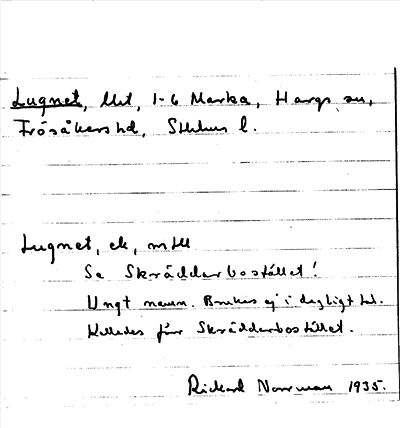 Lugnet, lht, 1-6 Marka, Hargs sn,
Frösåkers hd, Sthlms l.
Lugnet, ek, mtll
Se Skräddarbostället!
Ungt namn. Brukas ej i dagligt tal.
Kallades förr Skräddarbostället.
Rickard Norrman 1935.